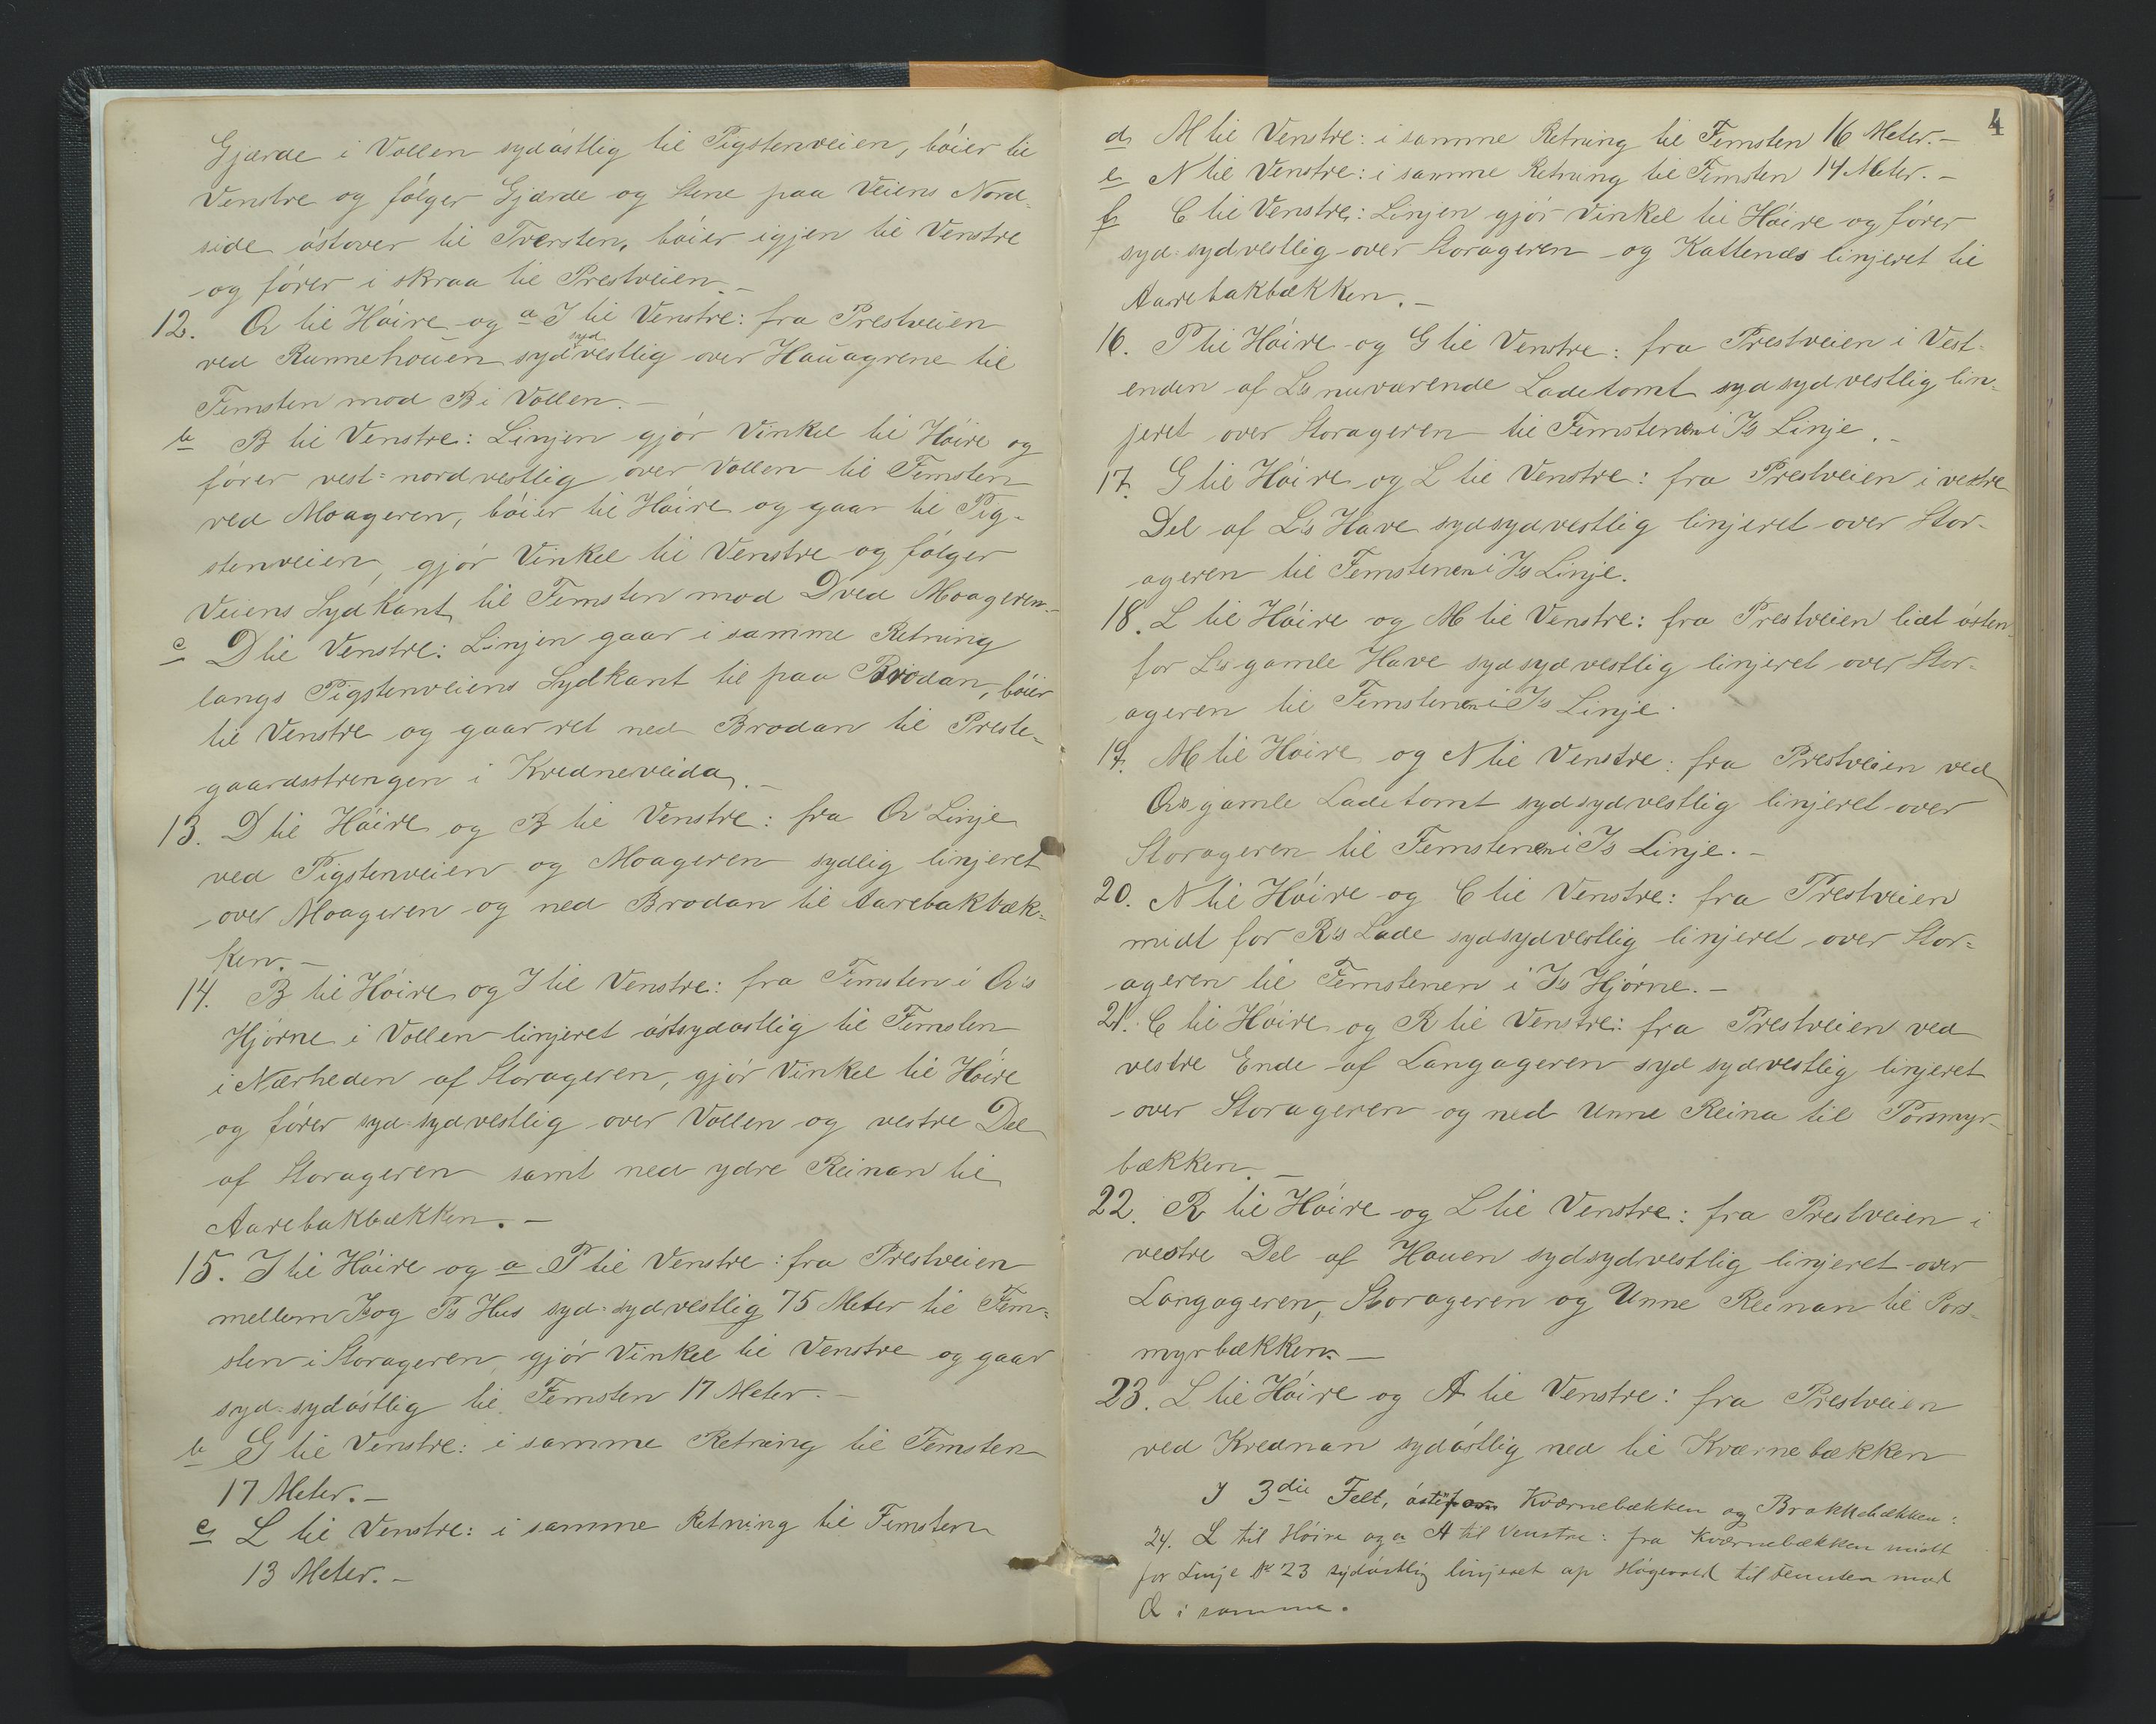 Gjærde i Vollen sydöstlig til Pigstenveien, böier til
Venstre og fölger Gjærde og Stene paa Veiens Nord-
side östover til Trersten, böier igjen til Venstre
og förer i skraa til Prestveien.-
12. Q til Höire og a I til Venstre: fra Prestveien
ved Runnehouen sydsydvestlig over Hauagrene til
Femsten mod B i Vollen.-
b B til Venstre: Linjen gjör Vinkel til Höire og
förer vest=nordvestlig over Vollen til Femsten
ved Moageren, böier til Höire og gaar til Pig-
stenveien, gjör Vinkel til Venstre og fölger
Veiens Sydkant til Femsten mod D ved Moageren.-
c D til Venstre: Linjen gaar i samme Retning
langs Pigstenveiens Sydkant til paa Brodan, böier
til Venstre og gaar ret ned Brodan til Preste-
gaardsstrengen i Kredneveida.-
13. D til Höire og B til Venstre: fra Q's Linje
ved Pigstenveien og Moageren sydlig linjeret
over Moageren og ned Brodan til Aarebakbæk-
ken.-
14. B til Höire og I til Venstre: fra Femsten i Q's
Hjörne i Vollen linjeret östsydöstlig til Femsten
i Nærheden af Storageren, gjör Vinkel til Höire
og förer syd=sydvestlig over Vollen og vestre Del
af Storageren samt ned ydre Reinan til
Aarebakbækken.-
15. I til Höire og a P til Venstre: fra Prestveien
mellem I's og P's Hus syd=sydvestlig 75 Meter til Fem=
sten i Storageren gjör Vinkel til Venstre og gaar
syd=sydöstlig til Femsten 17 Meter.-
b G til Venstre: i samme Retning til Femsten
17 Meter.-
c L til Venstre: i samme Retning til Femsten
13 Meter.-
4
d M til Venstre: i samme Retning til Femsten 16 Meter.-
e N til Venstre: i samme Retning til Femsten 14 Meter.-
f C til Venstre: Linjen gjör Vinkel til Höire og förer
syd=sydvestlig over Storageren og Kattenæs linjeret til
Aarebakbækken.-
16. P til Höire og G til Venstre: fra Prestveien i Vest-
enden af L's nuværende Ladetomt sydsydvestlig lin-
jeret over Storageren til Femstenen i I's Linje.-
17. G til Höire og L til Venstre: fra Prestveien i vestre
Del af L's Have sydsydvestlig linjeret over Stor-
ageren til Femstenen i I's Linje.
18. L til Höire og M til Venstre: fra Prestveien lidt östen-
for L's gamle Have sydsydvestlig linjeret over Stor-
ageren til Femstenen i I's Linje.
19. M til Höire og N til Venstre: fra Prestveien ved
Q's gamle Ladetomt sydsydvestlig linjeret over
Storageren til Femstenen i I's Linje.-
20. N til Höire og C til Venstre: fra Prestveien
midt for R's Lade sydsydvestlig linjeret over Stor=
ageren til Femstenen i I's Hjörne.-
21. C til Höire og R til Venstre: fra Prestveien ved
vestre Ende af Langageren syd sydvestlig linjeret
over Storageren og ned Unne Reina til Porsmyr-
bækken.-
22. R til Höire og L til Venstre: fra Prestveien i
vestre Del af Hauen sydsydvestlig linjeret over
Langageren, Storageren og Unne Reinan til Pors-
myrbækken.-
23. L til Höire og A til Venstre: fra Prestveien
ved Krednan sydöstlig ned til Kværnebækken
I 3die Felt, östenfor Kværnebækken og Brakkebækken:
24. L til Höire og a A til Venstre: fra Kværnebækken midt
for Linje No 23 sydöstlig linjeret op Högevold til Femsten mod
Q i samme.